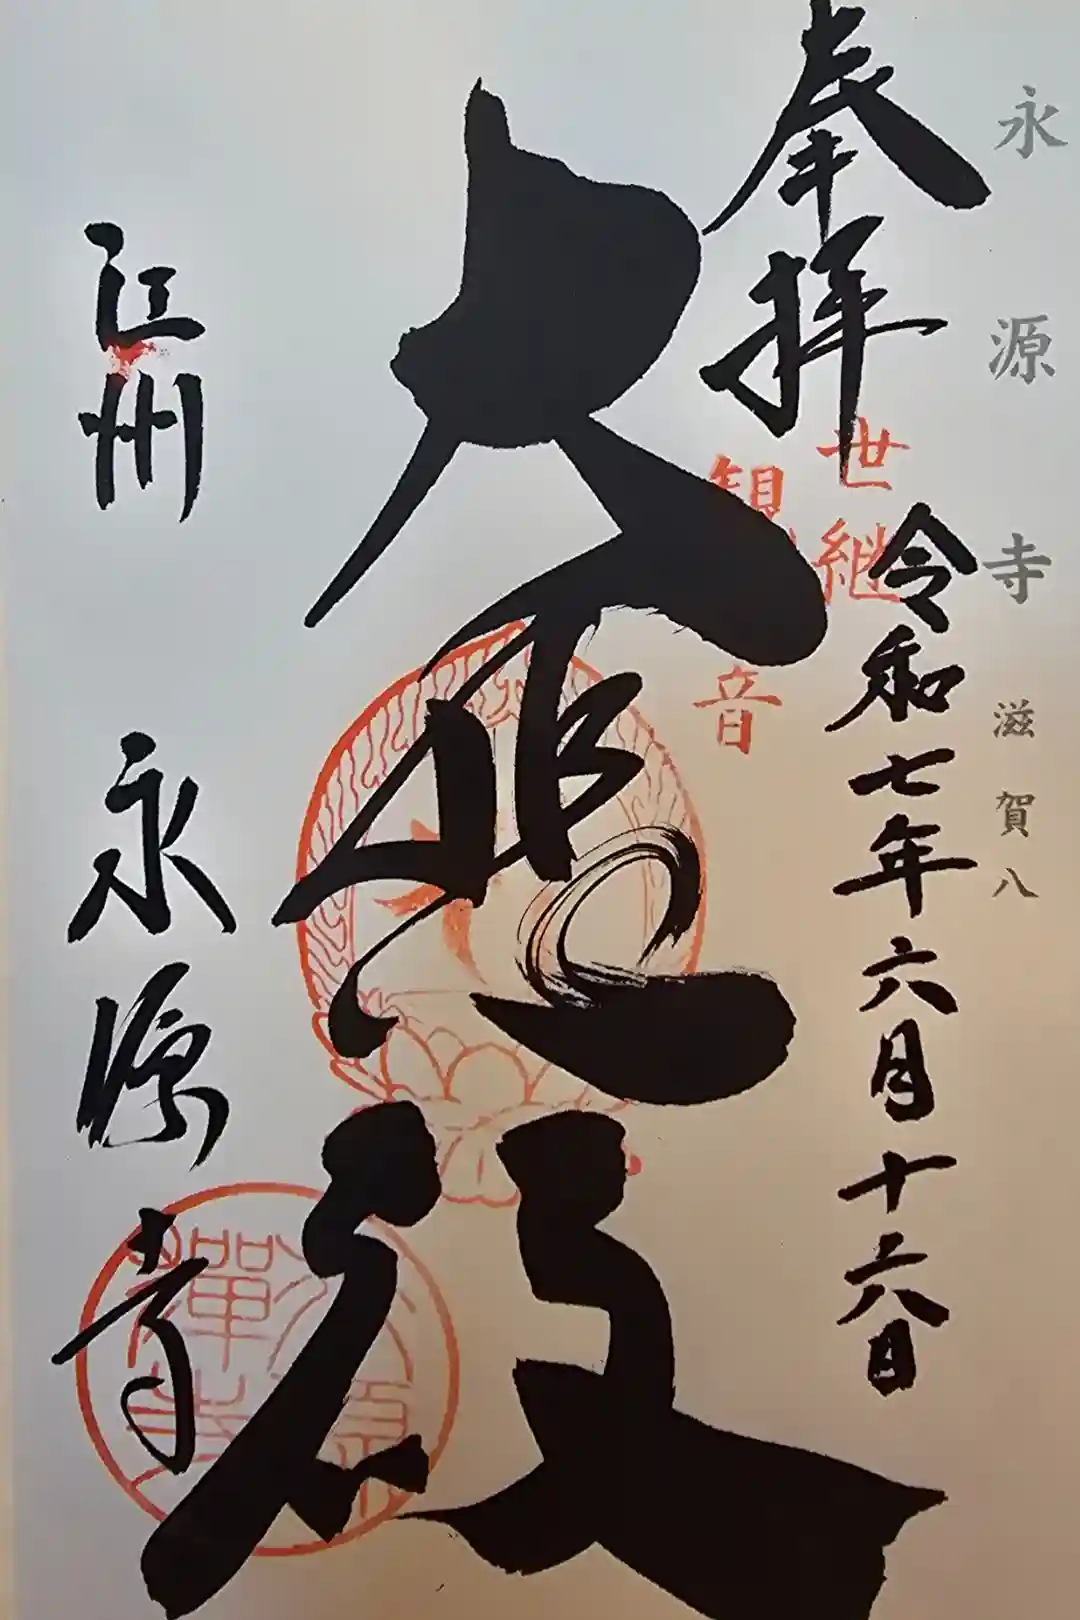 永源寺 滋賀八
奉拝
令和七年六月十六日
世継
観音
大悲殿
江州 永源寺